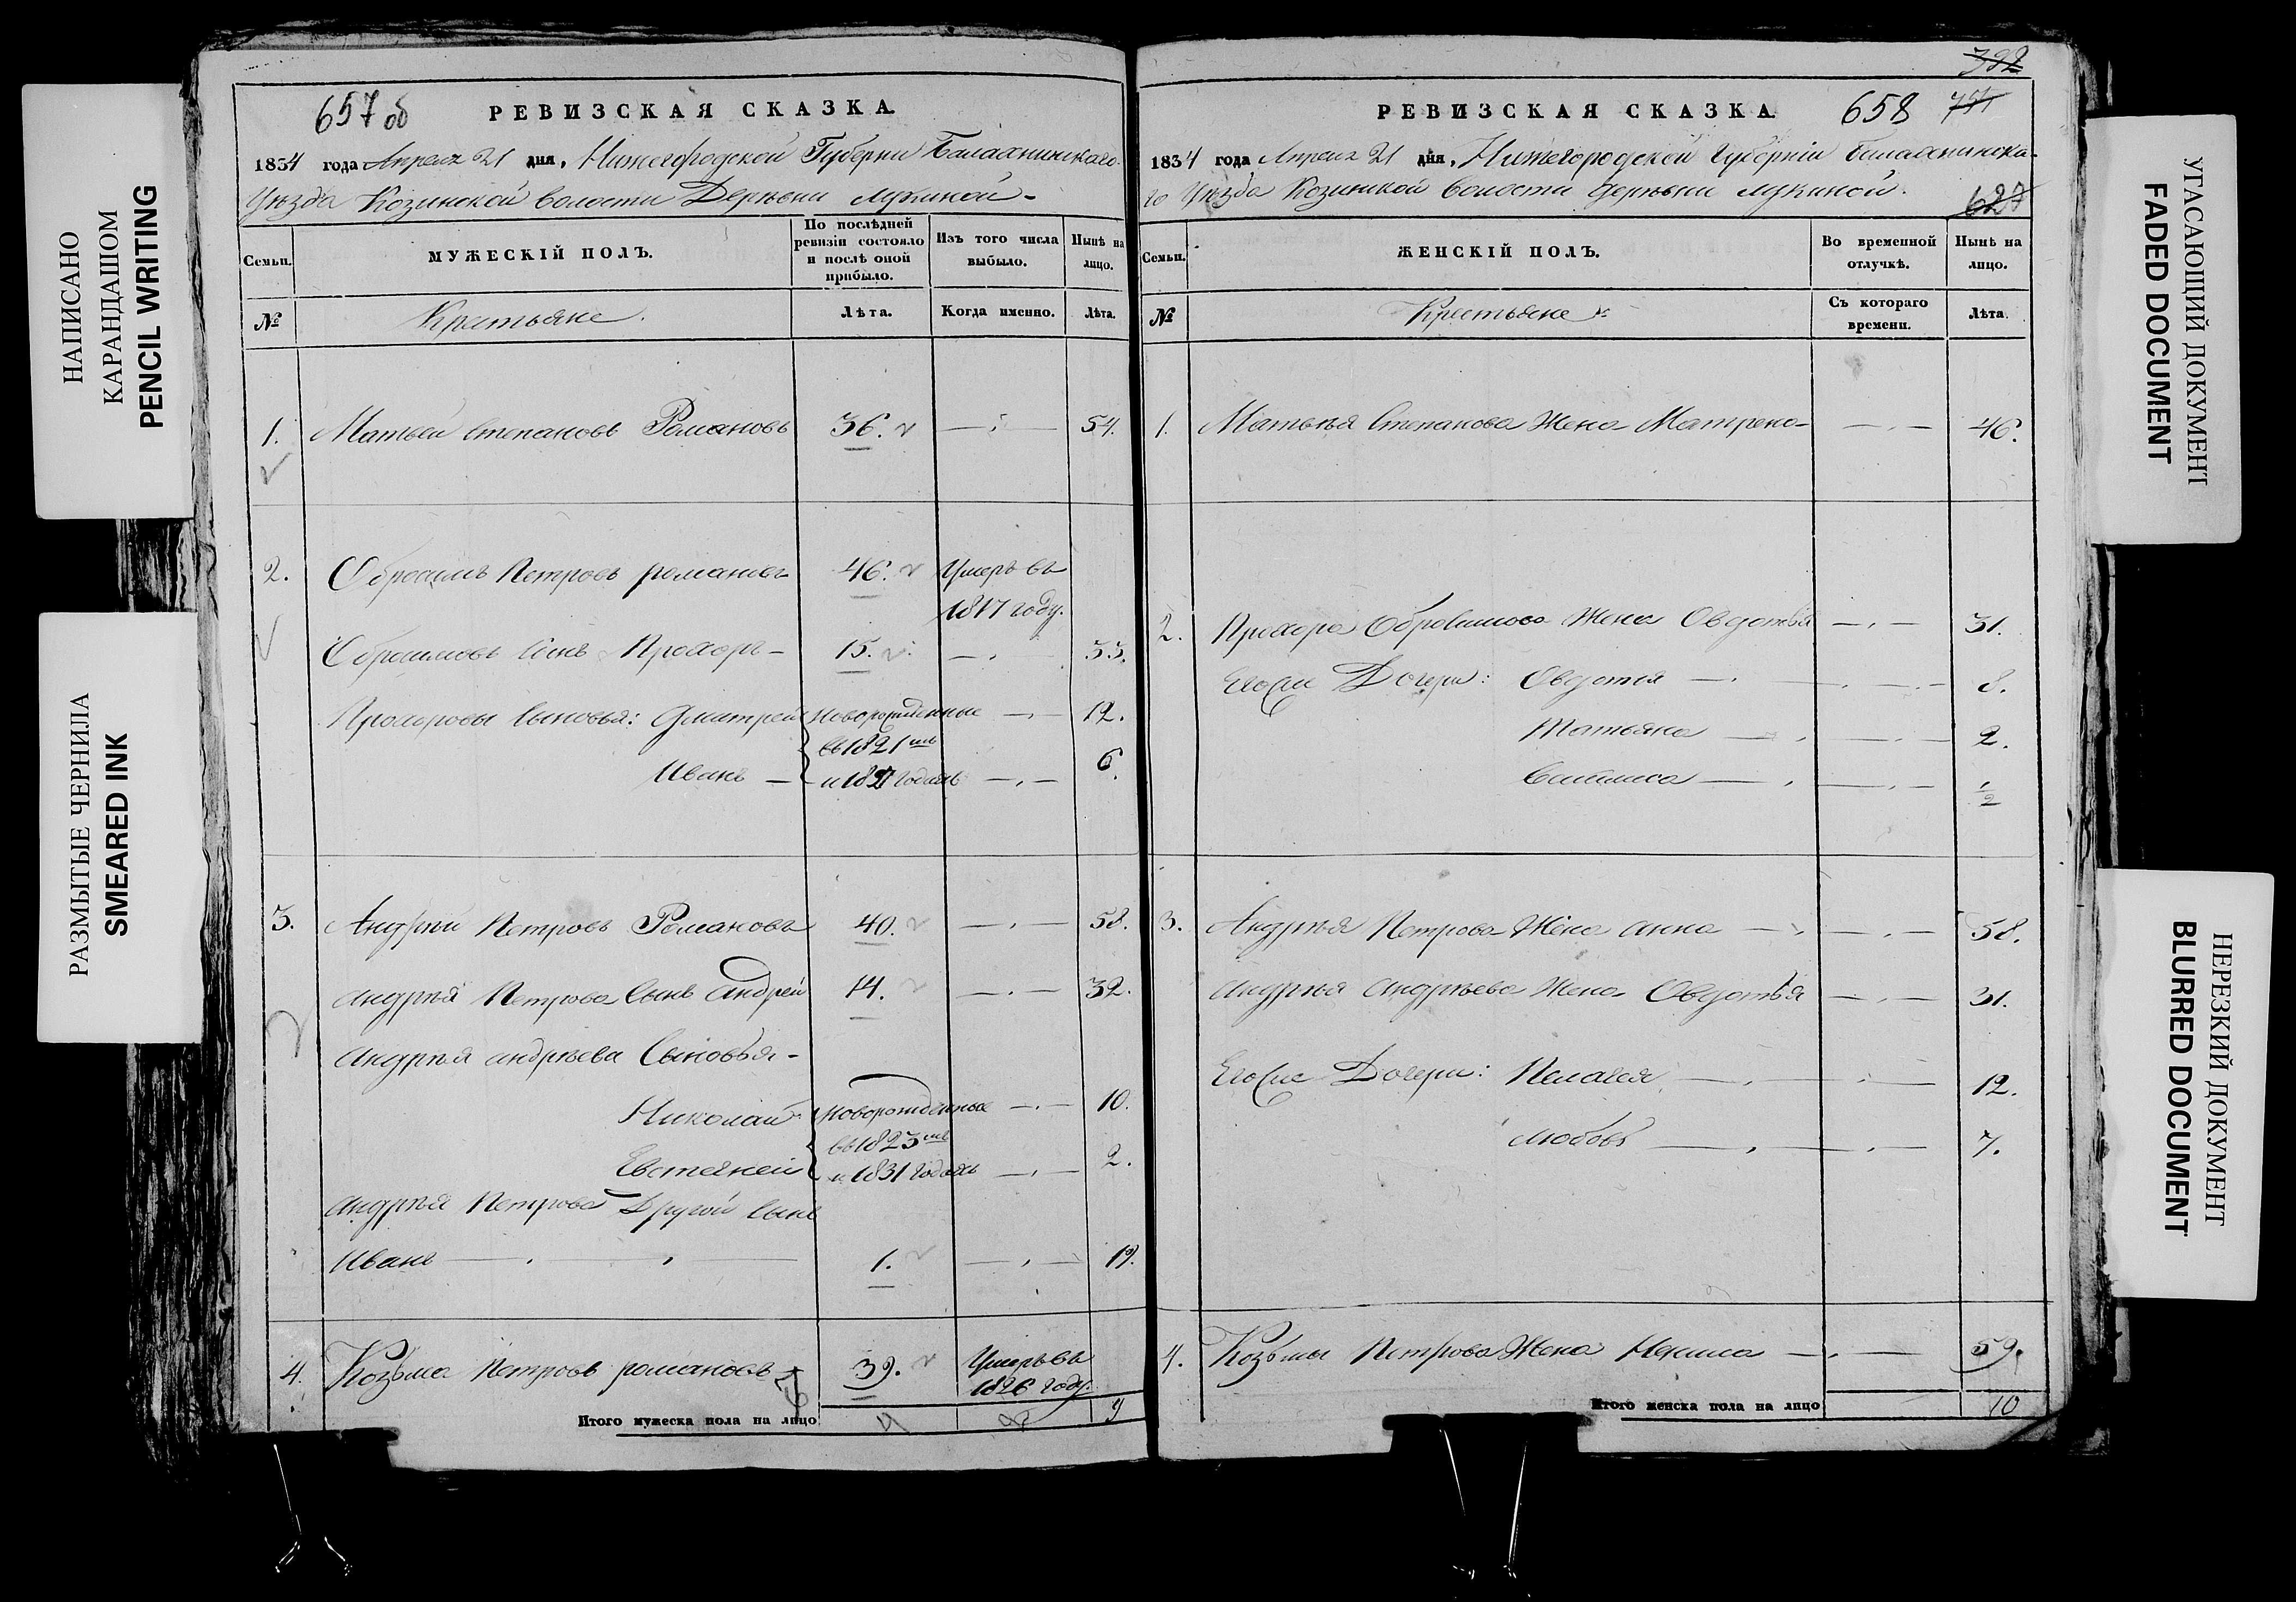 НАПИСАНО
КАРАНДАШОМ
PENCIL WRITING
РАЗМЫТЫЕ ЧЕРНИЛА
SMEARED INK
657 об
РЕВИЗСКАЯ СКАЗКА
1834 года Апреля 21 дня, Нижегородской Губерни Балахнинскаго
Уезда Козинской волости Деревни Лукиной
Семьи. МУЖЕСКІЙ ПОЛЪ. По послѣдней ревизіи состояло и послѣ оной прибыло. Изъ того числа выбыло. Нынѣ на лицо.
№ Крестьяне. Лѣта. Когда именно. Лѣта.
1. Матвей Степановъ Романовъ 36. 54.
2. Обросимъ Петровъ романовъ 46. Умеръ въ
1817 году.
Обросимовъ Сынъ Прохоръ 15. 33.
Прохоровы Сыновья: Дмитрей Новорожденные 12.
въ 1821мъ
Иванъ и 1827 годахъ 6.
3. Андрей Петровъ Романовъ 40. 58.
Андрѣя Петрова Сынъ Андрей 14. 32.
Андрѣя андрѣева Сыновья
Николай Новорожденные 10.
въ 1823мъ
Евстегней и 1831 годахъ 2.
Андрѣя Петрова Другой Сынъ
Иванъ 1. 19.
4. Козьма Петровъ романовъ 39. Умеръ въ
1826 году.
Итого мужеска пола на лицо 9
382
РЕВИЗСКАЯ СКАЗКА 658
1834 года Апреля 21 дня, Нижегородской Губерніи Балахнинска-
го Уѣзда Козинской волости деревни Лукиной.
627
Семьи. ЖЕНСКІЙ ПОЛЪ. Во временной отлучкѣ. Нынѣ на лицо.
№ Крестьяне Съ котораго времени. Лѣта.
1. Матвѣя Степанова Жена Матрена 46.
2. Прохора Обросимова Жена Овдотья 31.
Его Дочери: Овдотья 8.
Татьяна 2.
1/2
3. Андрѣя Петрова Жена анна 58.
Андрѣя Андрѣева Жена Овдотья 31.
Его Дочери: Пелагея 12.
Любовь 7.
4. Козьмы Петрова Жена 59.
Итого женска пола на лицо 10
УГАСАЮЩИЙ ДОКУМЕНТ
FADED DOCUMENT
НЕРЕЗКИЙ ДОКУМЕНТ
BLURRED DOCUMENT